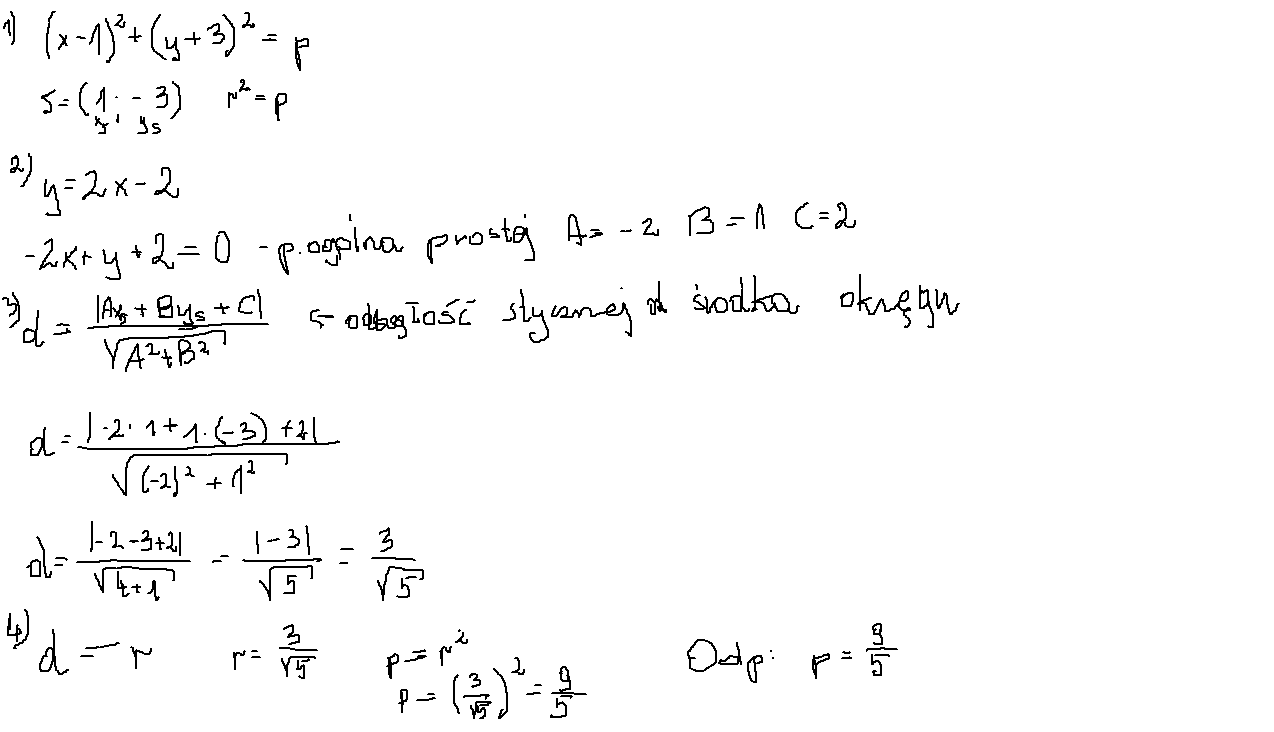 1) (x-1)²+(y+3)² = p
S=(1, -3) r²=p
xs, ys
2) y=2x-2
-2x+y+2=0 - p. ogólna prostej A=-2 B=1 C=2
3) d = |Axs+Bys+C| / √(A²+B²) ← odległość stycznej od środka okręgu
d = |-2·1+1·(-3)+2| / √((-2)²+1²)
d = |-2-3+2| / √(4+1) = |-3| / √5 = 3/√5
4) d = r r = 3/√5 p = r² Odp: p = 9/5
p = (3/√5)² = 9/5